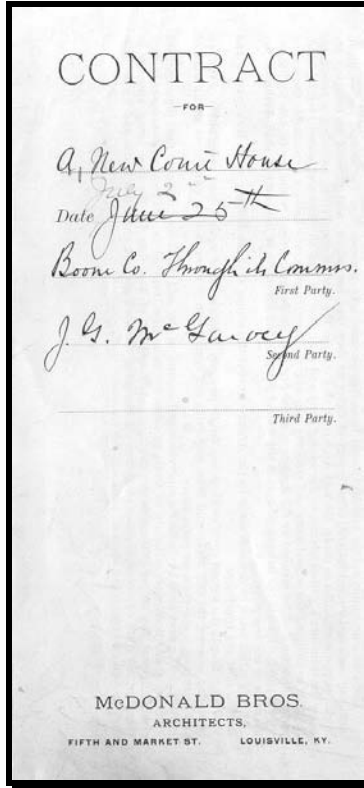 CONTRACT
—FOR—
A, New Court House
July 2nd
Date June 25th
Boone Co. Through its Commrs.
First Party.
J. G. McGarvey
Second Party.
Third Party.
McDONALD BROS.
ARCHITECTS,
FIFTH AND MARKET ST. LOUISVILLE, KY.